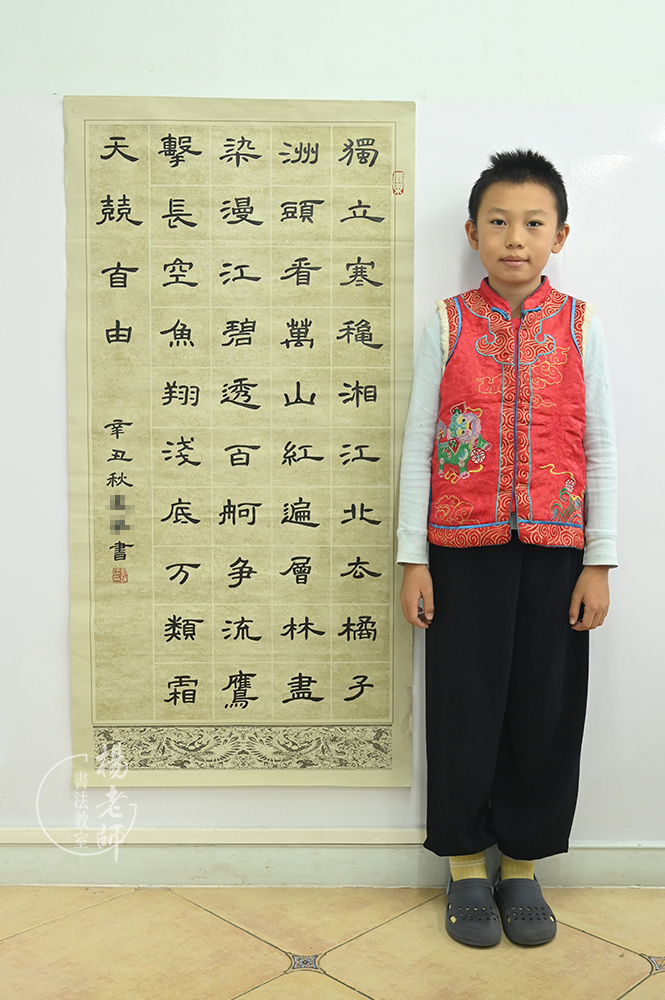 獨立寒穐湘江北厺橘子
洲頭看萬山紅遍層林盡
染漫江碧透百舸爭流鷹
擊長空魚翔淺底万類霜
天競自由
辛丑秋
書
楊老師
書法教室